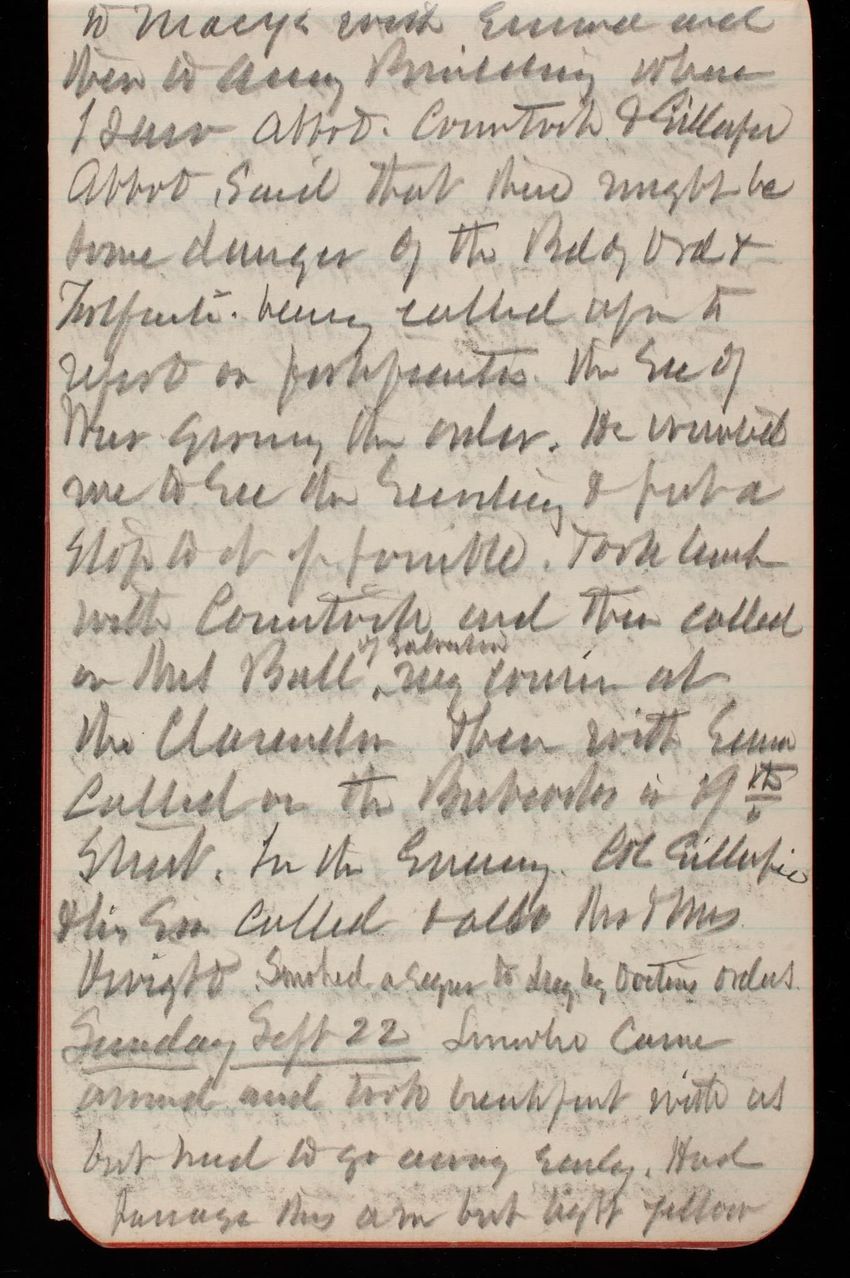 to Macy's with Emma and
then to Army Building where
I saw Abbot. Comstock & Gillespie
Abbot said that there might be
some danger of the Bd of Ord &
Fortfcat. being called upon to
report on fortfcatns. the Sec of
War giving the order. He wanted
me to see the Secretary & put a
stop to it if possible. Took lunch
with Comstock and then called
on Mrs Ball, of Galveston my cousin at
the Clarendon then with Emma
called on the in 9th
Street. In the Evening. Col Gillespie
& his Son called & also Mr & Mrs
Dwight. Smoked a segar to day by Doctors orders.
Sunday Sept 22 came
around and took breakfast with us
but had to go away early. Had
passage this a.m but light yellow